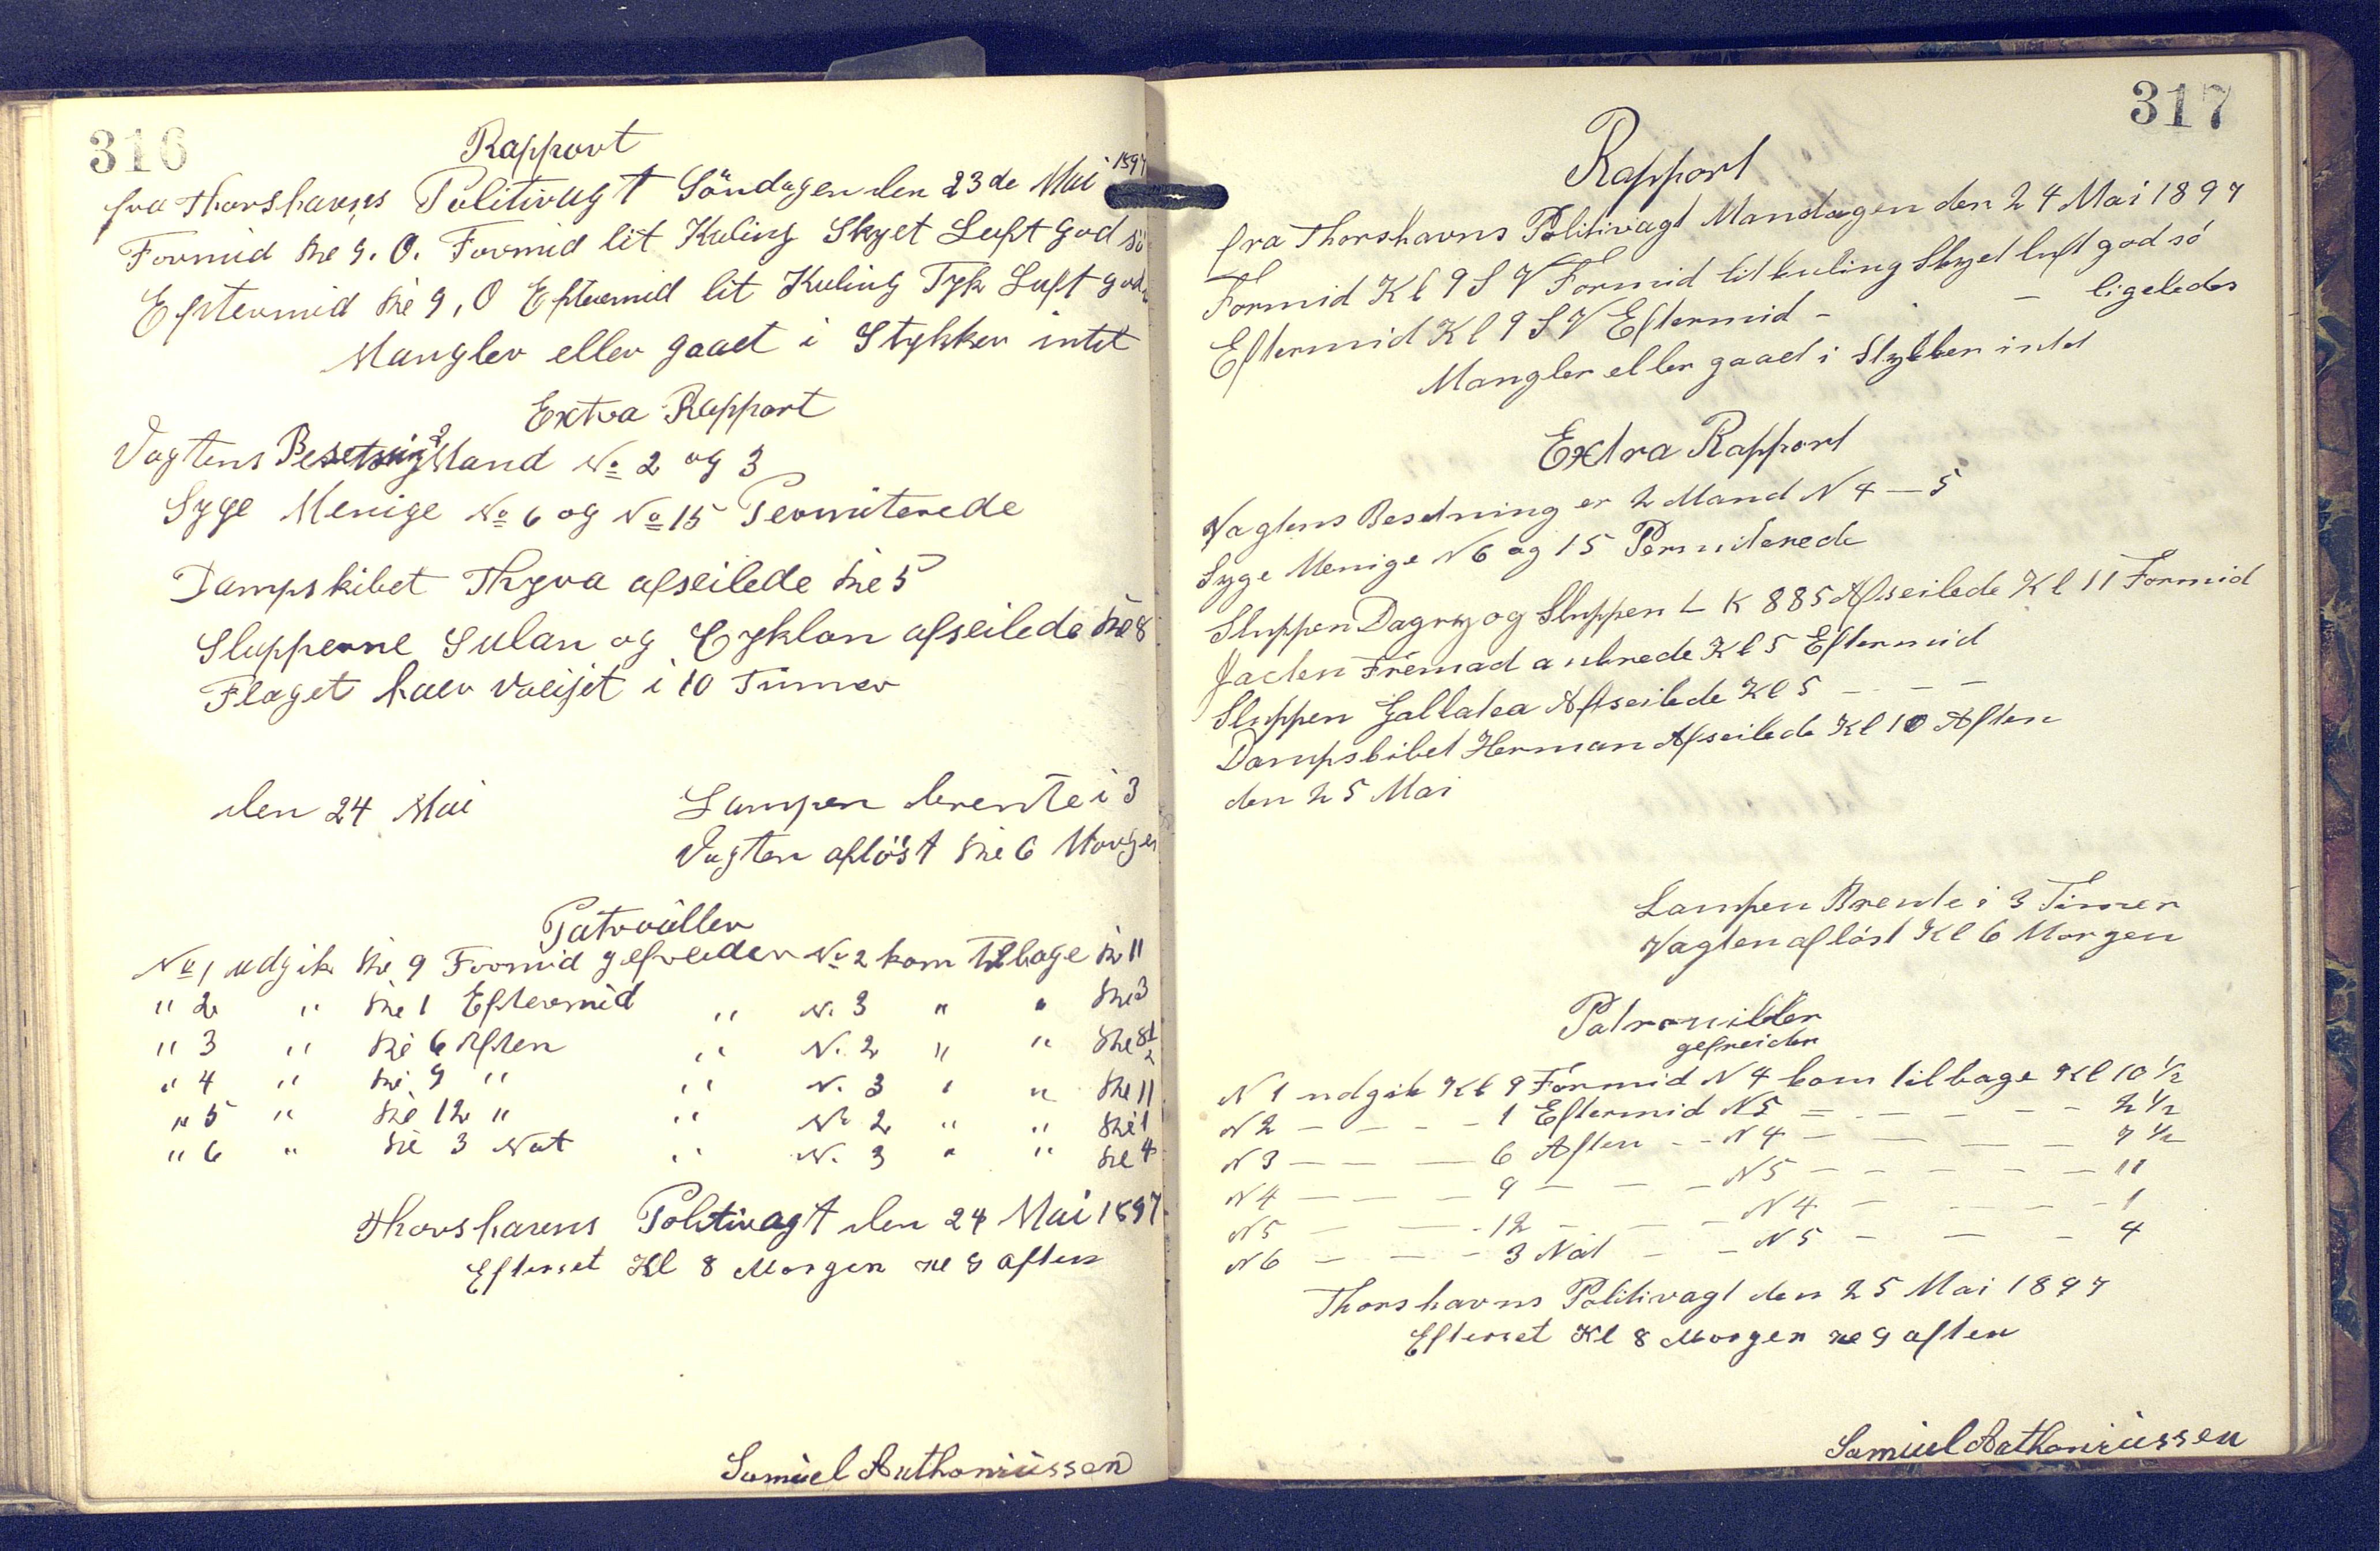 316
Rapport
fra Thorshavns Politivagt Söndagen den 23de Mai 1897
Formid Kl 9. O. Formid lit Kuling Skyet Luft god sö
Eftermid Kl 9, O Eftermid lit Kuling Tyk Luft god
Mangler eller gaaet i Stykker intet
Extra Rapport
Vagtens Besetning 2 Mand No 2 og 3
Syge Menige No 6 og No 15 Permiterede
Dampskibet Thyra afseilede Kl 5
Slupperne Sulan og Cyklon afseilede Kl 8
Flaget haer vaeijet i 10 Timer
den 24 Mai
Lampen brente i 3
Vagten aflöst Kl 6 Morgen
Patroüller
No 1 udgik Kl 9 Formid gefreider No 2 kom Tilbage Kl 11
" 2 " Kl 1 Eftermid " N. 3 " " Kl 3
" 3 " Kl 6 Aften " N. 2 " " Kl 8 1/2
" 4 " Kl 9 " " N. 3 " " Kl 11
" 5 " Kl 12 " " No 2 " " Kl 1
" 6 " Kl 3 Nat " N. 3 " " Kl 4
Thorshavns Politivagt den 24 Mai 1897
Efterset Kl 8 Morgen Kl 9 aften
Samüel Anthoniüssen
317
Rapport
fra Thorshavns Politivagt Mandagen den 24 Mai 1897
Formid Kl 9 S V Formid lit kuling Skyet luft god sö
Eftermid Kl 9 S V Eftermid - - ligeledes
Mangler eller gaaet i Stykker intet
Extra Rapport
Vagtens Besetning er 2 Mand N 4 — 5
Syge Menige N 6 og 15 Permiterede
Sluppen Dagry og Sluppen L K 885 Afseilede Kl 11 Formid
Jacten Fremad ankrede Kl 5 Eftermid
Sluppen Gallatea Afseilede Kl 5 — - — —
Dampskibet Herman Afseilede Kl 10 Aften
den 25 Mai
Lampen Brente i 3 Timer
Vagten aflöst Kl 6 Morgen
Patrouiller
gefreider
N 1 udgik Kl 9 Formid N 4 kom tilbage Kl 10 1/2
N 2 — - - - 1 Eftermid N 5 — - — - - 2 1/2
N 3 — — — 6 Aften - - N 4 — — — — 7 1/2
N 4 — — — 9 — — - N 5 — — — — 11
N 5 — — - 12 - — - N 4 — - — - 1
N 6 — — - 3 Nat — - N 5 — — - 4
Thorshavns Politivagt den 25 Mai 1897
Efterset Kl 8 Morgen Kl 9 aften
Samüel Anthoniüssen